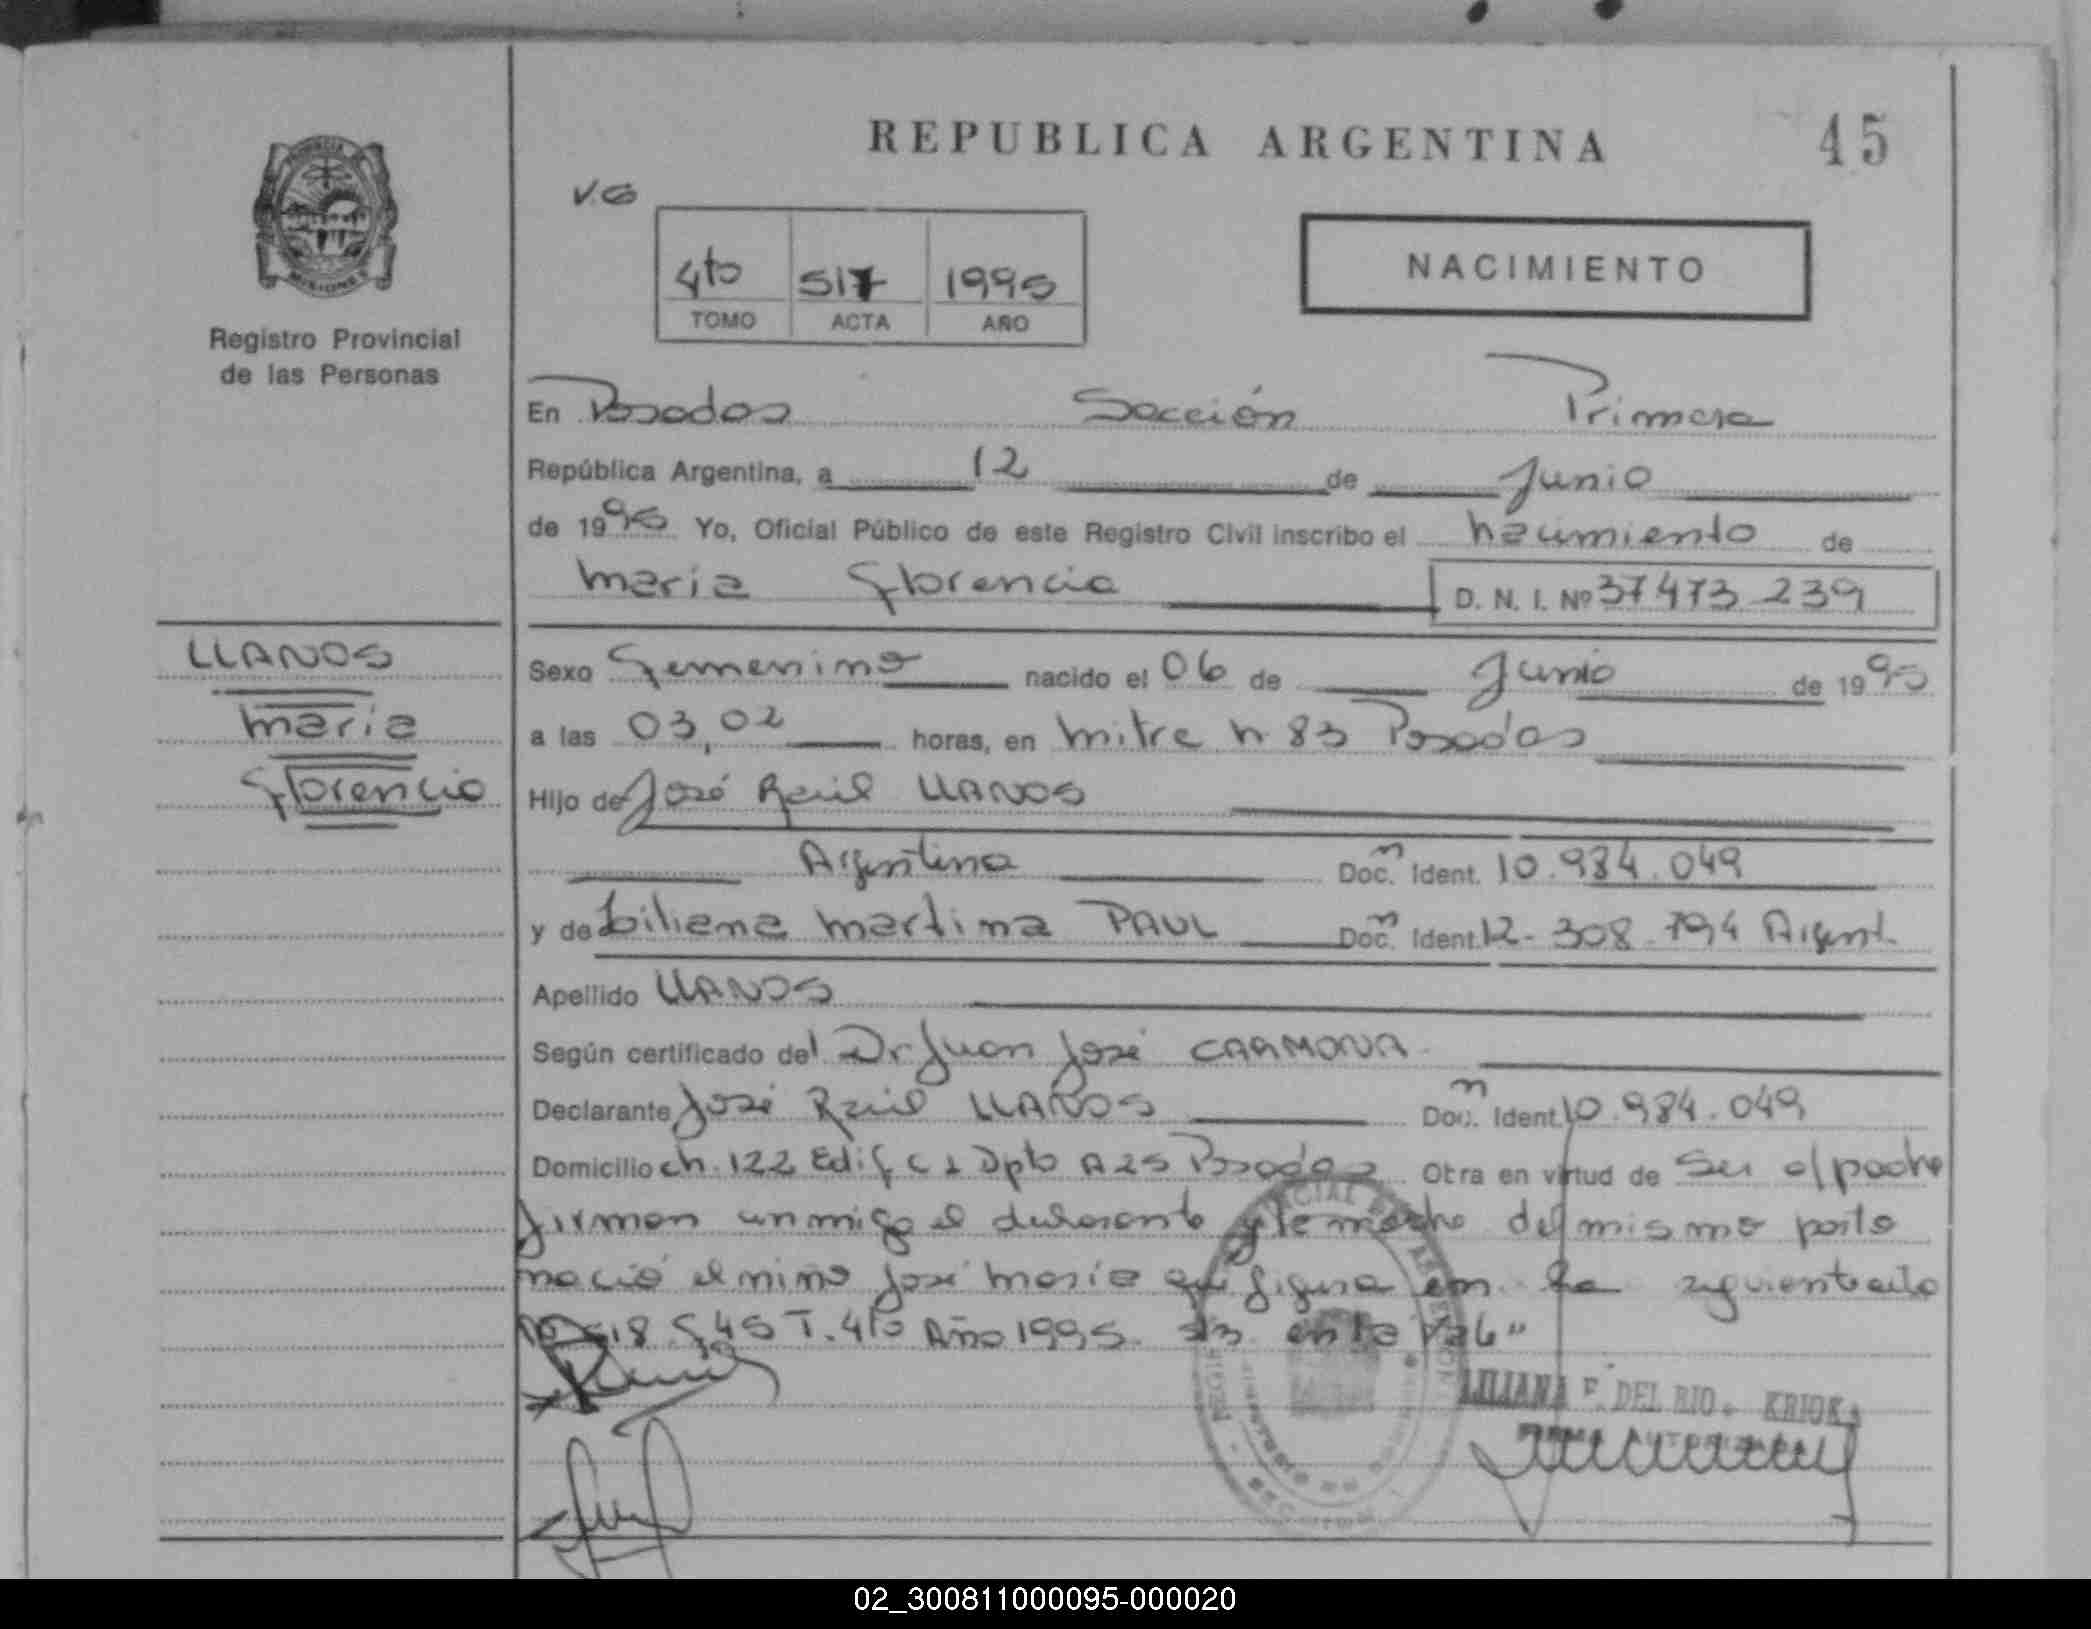 REPUBLICA ARGENTINA
45
V.G
4to 517 1995
TOMO ACTA AÑO
NACIMIENTO
PROVINCIA DE MISIONES
Registro Provincial
de las Personas
En Posadas Sección Primera
República Argentina, a 12 de Junio
de 1995 Yo, Oficial Público de este Registro Civil inscribo el nacimiento de
maria Florencia D. N. I. Nº 37473239
LLANOS
maria
Florencia
Sexo Femenino nacido el 06 de Junio de 1995
a las 03,02 horas, en mitre n 83 Posadas
Hijo de José Raúl LLANOS
Argentino Doc. Ident. 10.984.049
y de Liliana martina PAUL Doc. Ident. 12.308.794 Argent.
Apellido LLANOS
Según certificado del Dr Juan José CARMONA
Declarante José Raúl LLANOS Doc. Ident. 10.984.049
Domicilio ch. 122 Edif C 2 Dpto A25 Posadas Otra en virtud de Ser el padre
firman conmigo el declarante y la madre del mismo parto
nació el niño José maria que figura en la siguiente acta
Nº 518 F 45 T. 4to Año 1995.
LILIANA F. DEL RIO
02_300811000095-000020